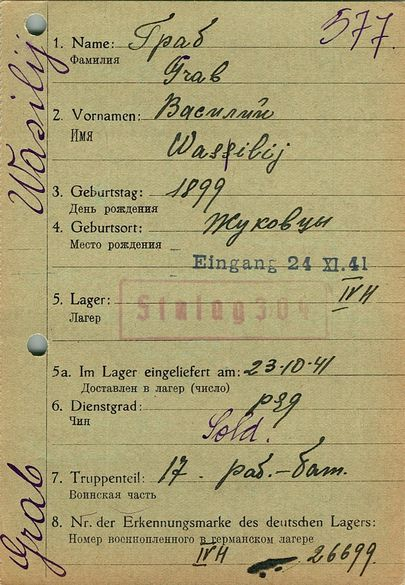 577.
1. Name: Граб
Фамилия
Grab
2. Vornamen: Василий
Имя
Wassilij
3. Geburtstag: 1899
День рождения
4. Geburtsort: Жуковцы
Место рождения
Eingang 24 XI. 41
5. Lager: IV H
Лагер
Stalag 304
5a. Im Lager eingeliefert am: 23-10-41
Доставлен в лагер (число)
6. Dienstgrad: ряд
Чин
Sold.
7. Truppenteil: 17 - раб.-бат.
Воинская часть
8. Nr. der Erkennungsmarke des deutschen Lagers:
Номер военнопленного в германском лагере
IV H 26699.
Grab Wasilij